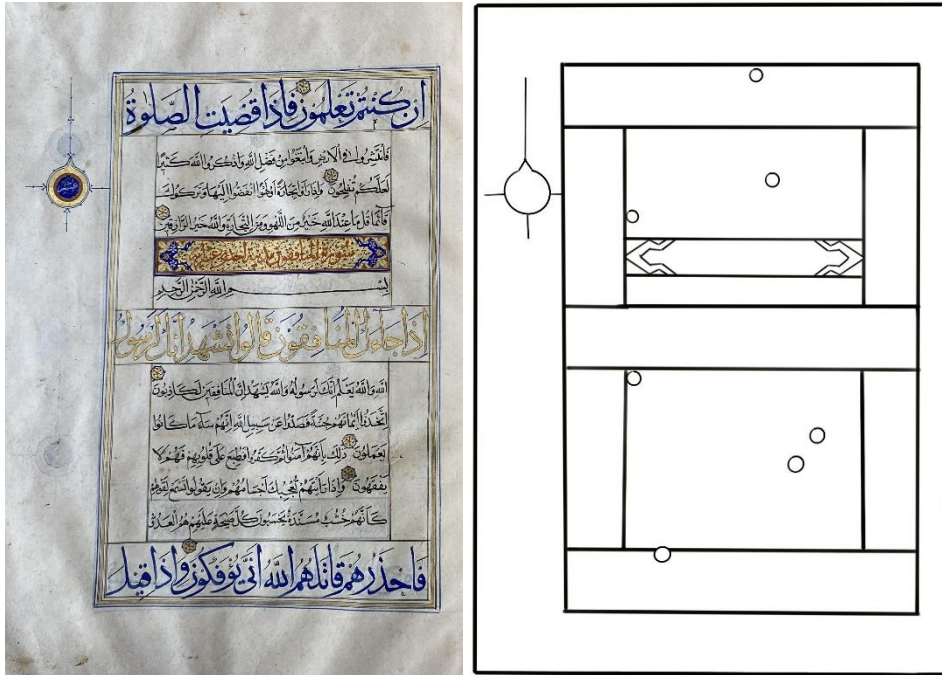 ان كنتم تعلمون فاذا قضيت الصلوة
فانتشروا في الارض وابتغوا من فضل الله واذكروا الله كثيرا
لعلكم تفلحون واذا راوا تجارة او لهوا انفضوا اليها وتركوك
قائما قل ما عند الله خير من اللهو ومن التجارة والله خير الرازقين
سورة المنافقون
بسم الله الرحمن الرحيم
اذا جاءك المنافقون قالوا نشهد انك لرسول
الله والله يعلم انك لرسوله والله يشهد ان المنافقين لكاذبون
اتخذوا ايمانهم جنة فصدوا عن سبيل الله انهم ساء ما كانوا
يعملون ذلك بانهم آمنوا ثم كفروا فطبع على قلوبهم فهم لا
يفقهون واذا رايتهم تعجبك اجسامهم وان يقولوا تسمع لقولهم
كانهم خشب مسندة يحسبون كل صيحة عليهم هم العدو
فاحذرهم قاتلهم الله انى يؤفكون واذا قيل